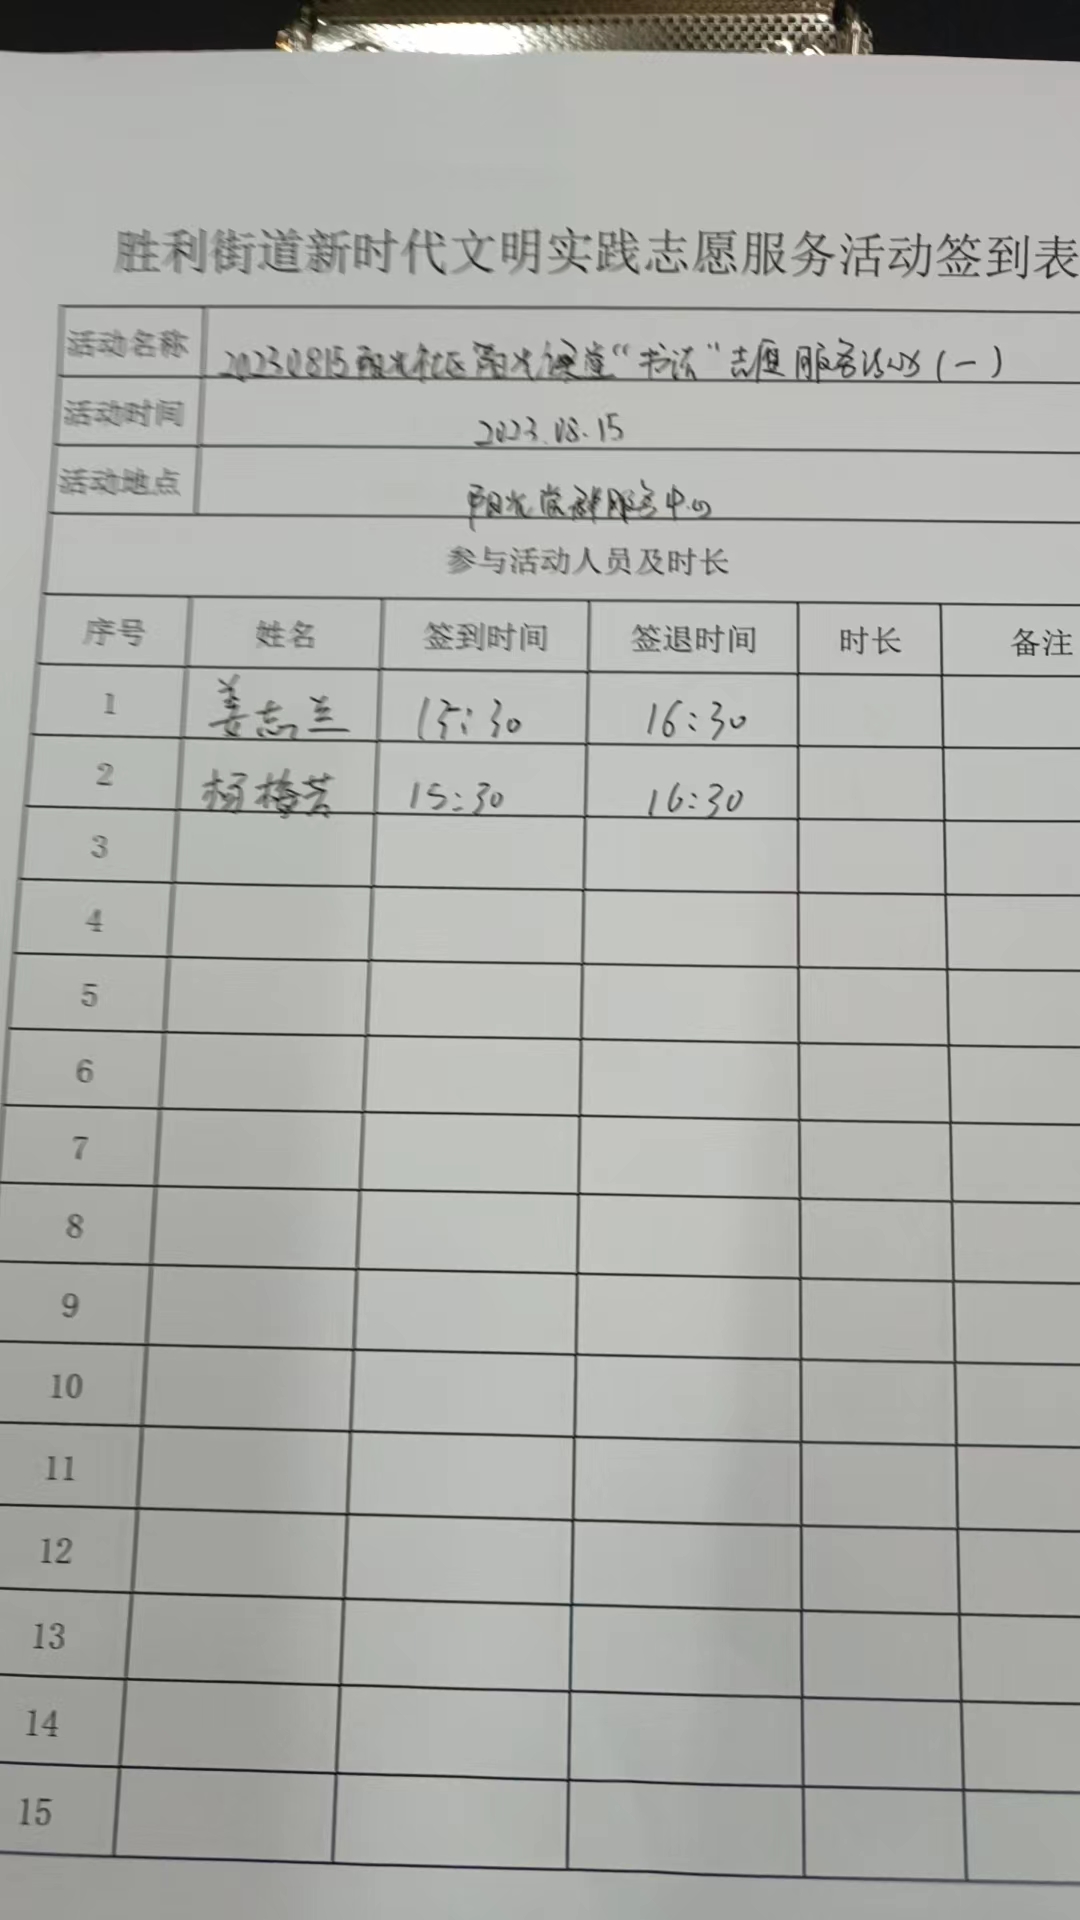 胜利街道新时代文明实践志愿服务活动签到表
活动名称 20230815阳光社区阳光课堂“书法”志愿服务活动(一)
活动时间 2023.08.15
活动地点 阳光党群服务中心
参与活动人员及时长
序号 姓名 签到时间 签退时间 时长 备注
1 姜志兰 15:30 16:30
2 杨梅芳 15:30 16:30
3
4
5
6
7
8
9
10
11
12
13
14
15